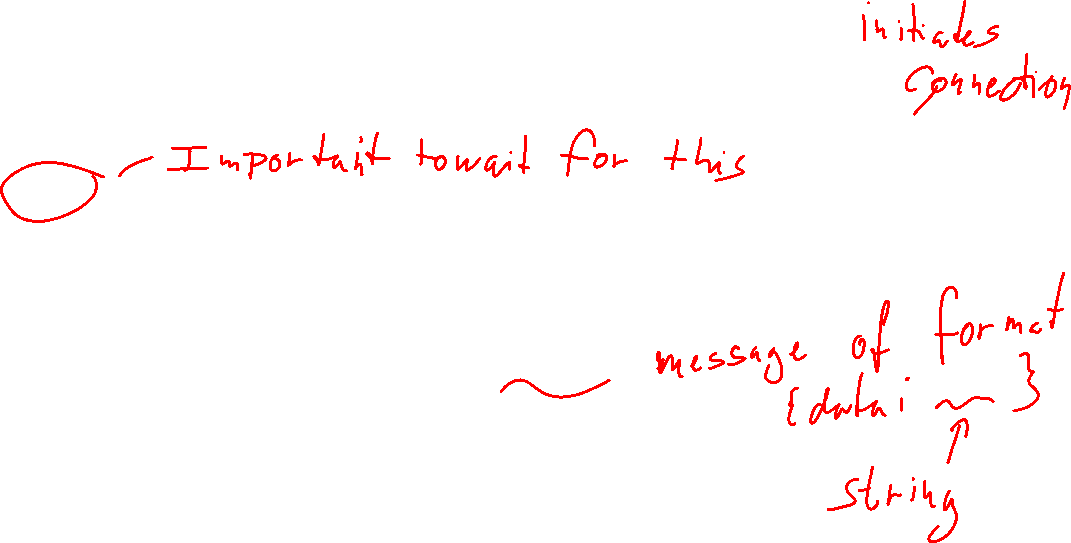 initiates
connection
Important to wait for this
message of format
{data: ~~ }
string